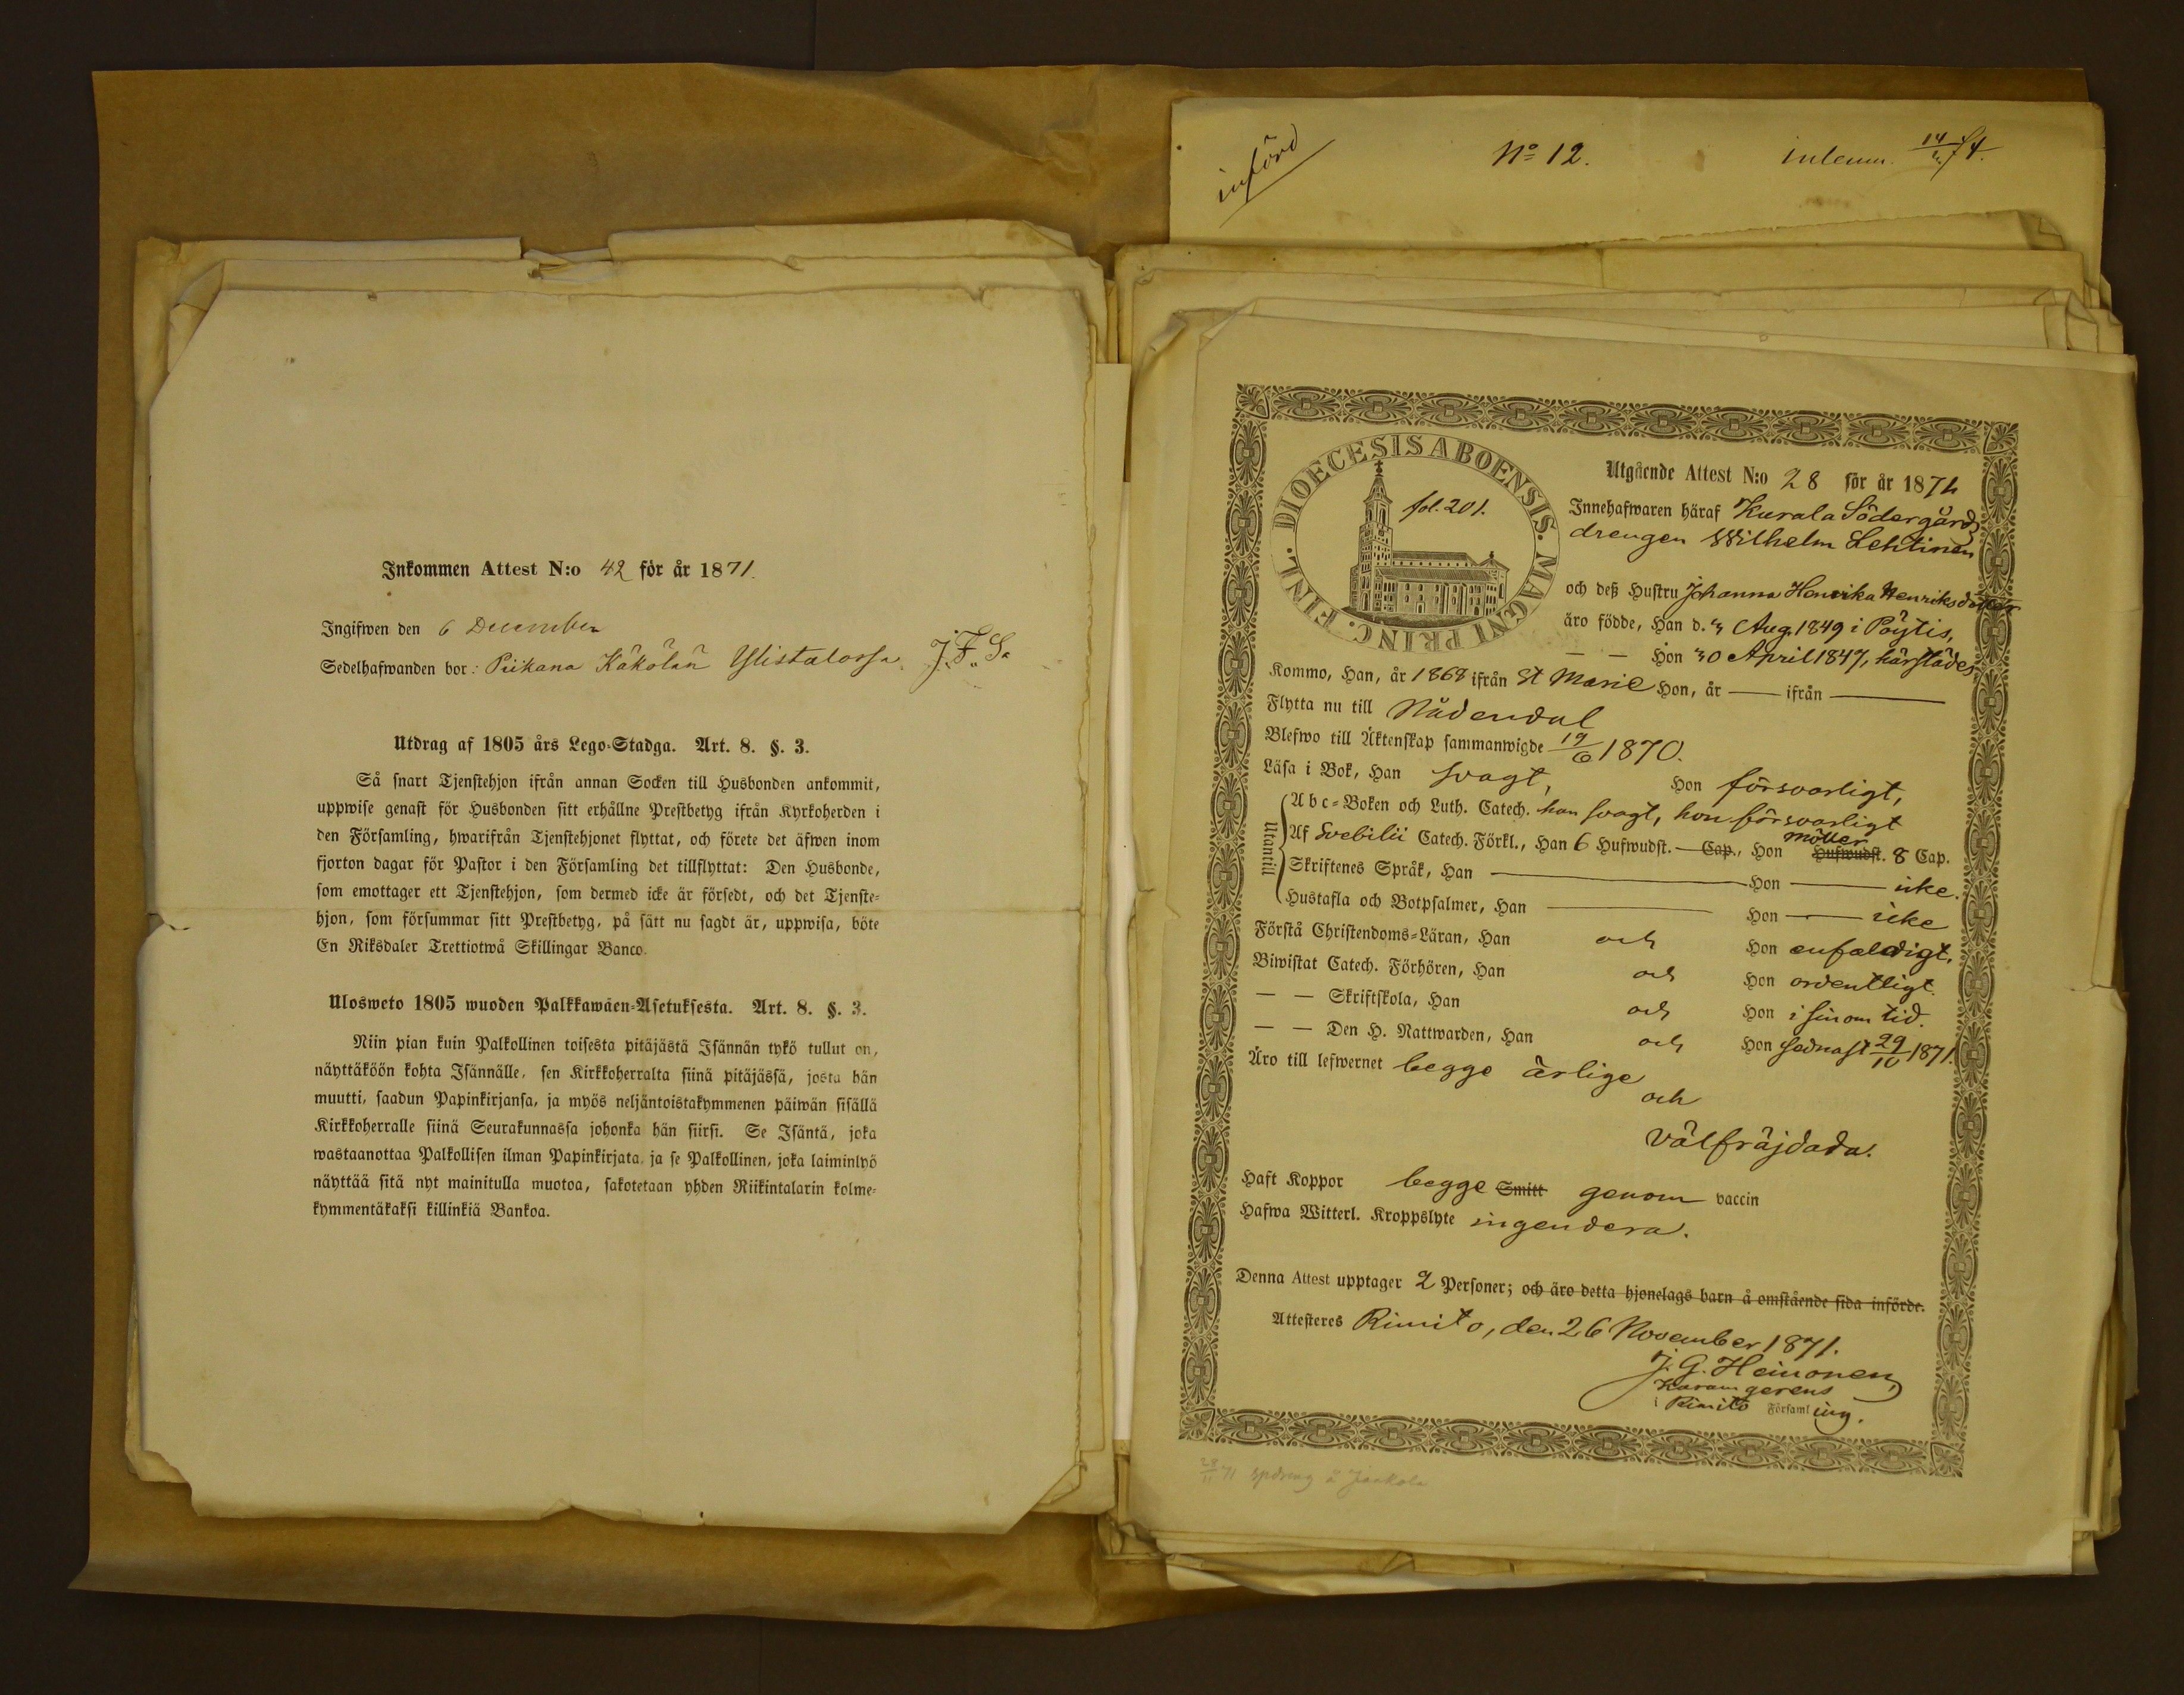 Inkommen Attest N:o 42 för år 1871.
Ingifwen den 6 December
Sedelhafwanden bor: Piikana Käkölän Ylistalossa. J. F. S.
Utdrag af 1805 års Lego-Stadga. Art. 8. §. 3.
Så snart Tjenstehjon ifrån annan Socken till Husbonden ankommit,
uppwise genast för Husbonden sitt erhållne Prestbetyg ifrån Kyrkoherden i
den Församling, hwarifrån Tjenstehjonet flyttat, och förete det äfwen inom
fjorton dagar för Pastor i den Församling det tillflyttat: Den Husbonde,
som emottager ett Tjenstehjon, som dermed icke är försedt, och det Tjenste-
hjon, som försummar sitt Prestbetyg, på sätt nu sagdt är, uppwisa, böte
En Riksdaler Trettiotwå Skillingar Banco.
Ulosweto 1805 wuoden Palkkawäen-Asetuksesta. Art. 8. §. 3.
Niin pian kuin Palkollinen toisesta pitäjästä Isännän tykö tullut on,
näyttäköön kohta Isännälle, sen Kirkkoherralta siinä pitäjässä, josta hän
muutti, saadun Papinkirjansa, ja myös neljäntoistakymmenen päiwän sisällä
Kirkkoherralle siinä Seurakunnassa johonka hän siirsi. Se Isäntä, joka
wastaanottaa Palkollisen ilman Papinkirjata, ja se Palkollinen, joka laiminlyö
näyttää sitä nyt mainitulla muotoa, sakotetaan yhden Riikintalarin kolme-
kymmentäkaksi killinkiä Bankoa.
införd
No 12.
inlemn. 14/ 74.
DIOECESIS ABOENSIS. MAGNI PRINC. FINL.
fol. 201.
Utgående Attest N:o 28 för år 1871
Innehafwaren häraf Kurala Södergårds
drengen Wilhelm Lehtinen,
och deß Hustru Johanna Henrika Henriksdotter
äro födde, Han d. 4/3 Aug. 1849 i Pöytis,
— — Hon 30 April 1847, härstädes,
Kommo, Han, år 1868 ifrån St Marie Hon, år — ifrån —
Flytta nu till Nådendal
Blefwo till Äktenskap sammanwigde 19/6 1870.
Läsa i Bok, Han svagt, Hon försvarligt,
Utantill
Abc-Boken och Luth. Catech. han svagt, hon försvarligt
Af Svebilii Catech. Förkl., Han 6 Hufwudst. — Cap., Hon Möller Hufwudst. 8 Cap.
Skriftenes Språk, Han — Hon — icke.
Hustafla och Botpsalmer, Han — Hon — icke
Förstå Christendoms-Läran, Han och Hon enfaldigt,
Biwistat Catech. Förhören, Han och Hon ordentligt.
— — Skriftskola, Han och Hon i sinom tid.
— — Den H. Nattwarden, Han och Hon sednast 29/10 1871.
Äro till lefwernet begge ärlige
och
välfräjdade.
Haft Koppor begge Smitt genom vaccin
Hafwa Witterl. Kroppslyte ingendera.
Denna Attest upptager 2 Personer; och äro detta hjonelags barn å omstående sida införde.
Attesteres Rimito, den 26 November 1871.
J. G. Heinonen,
gerens
i Rimito Församling.
28/11 71